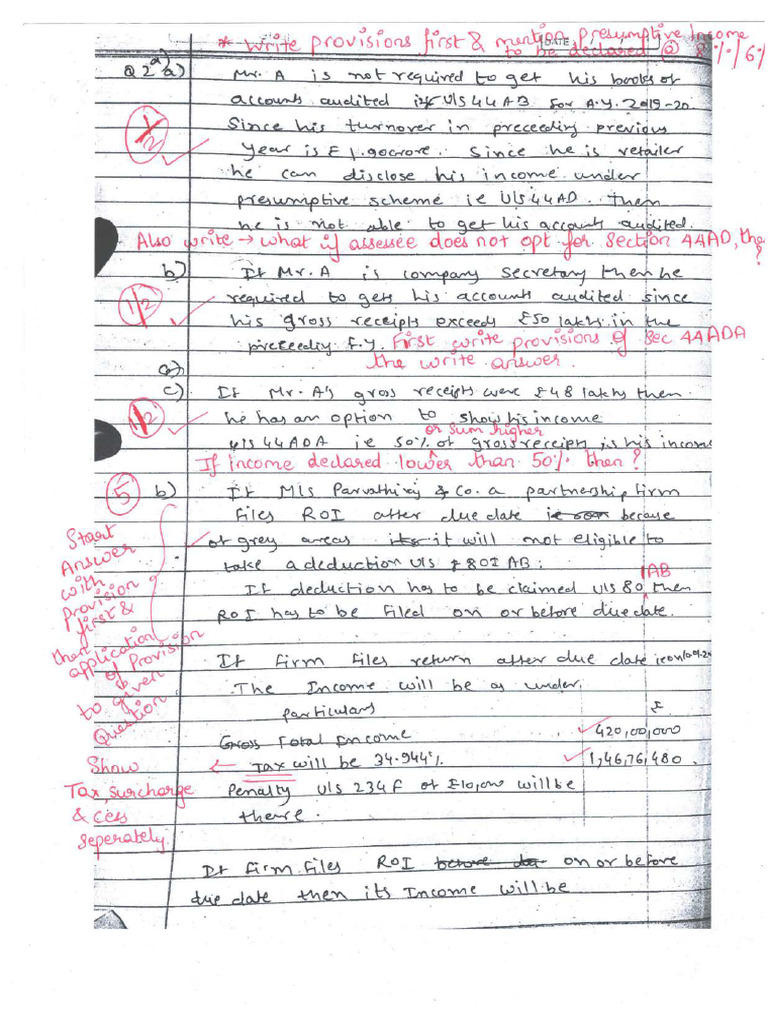 * Write provisions first & mention Presumptive Income
to be declared @ 8%/6%
DATE
Q2 a) a)
Mr. A is not required to get his books of
accounts audited U/S 44AB for A.Y. 2019-20
Since his turnover in preceediy previous
1/2
Year is £ 1.90crore. Since he is retailer
he can disclose his income under
presumptive scheme ie U/S 44AD. Then
he is not able to get his accounts audited.
Also write → what if assessee does not opt for Section 44AD, the
?
b) If Mr. A is company secretary then he
1/2
required to gets his accounts audited since
his gross receipts exceeds £50 lakhs in the
preceediy F.Y. First write provisions of Sec 44ADA
the write answer.
a)
c) If Mr. A's gross receipts were £48 lakhs then
1/2
he has an option to show his income
or sum higher
U/S 44ADA ie 50% of gross receipts is his income
If income declared lower than 50% then?
5
b) If M/s Parvathi & Co. a partnership firm
files ROI after due date is because
of grey areas it will not eligible to
take a deduction U/S 80IAB.
AB
If deduction has to be claimed U/S 80 then
ROI has to be filed on or before due date.
Start
Answer
with
provision
first &
then
application
of Provision
to given
Question
If firm files return after due date
The Income will be as under.
particulars £
Gross Total Income 420,00,000
Show ← Tax will be 34.944% 1,46,76,480
Tax, surcharge
& cess
seperately.
Penalty U/S 234F of £10,000 will be
there.
If firm files ROI before due on or before
due date then its Income will be